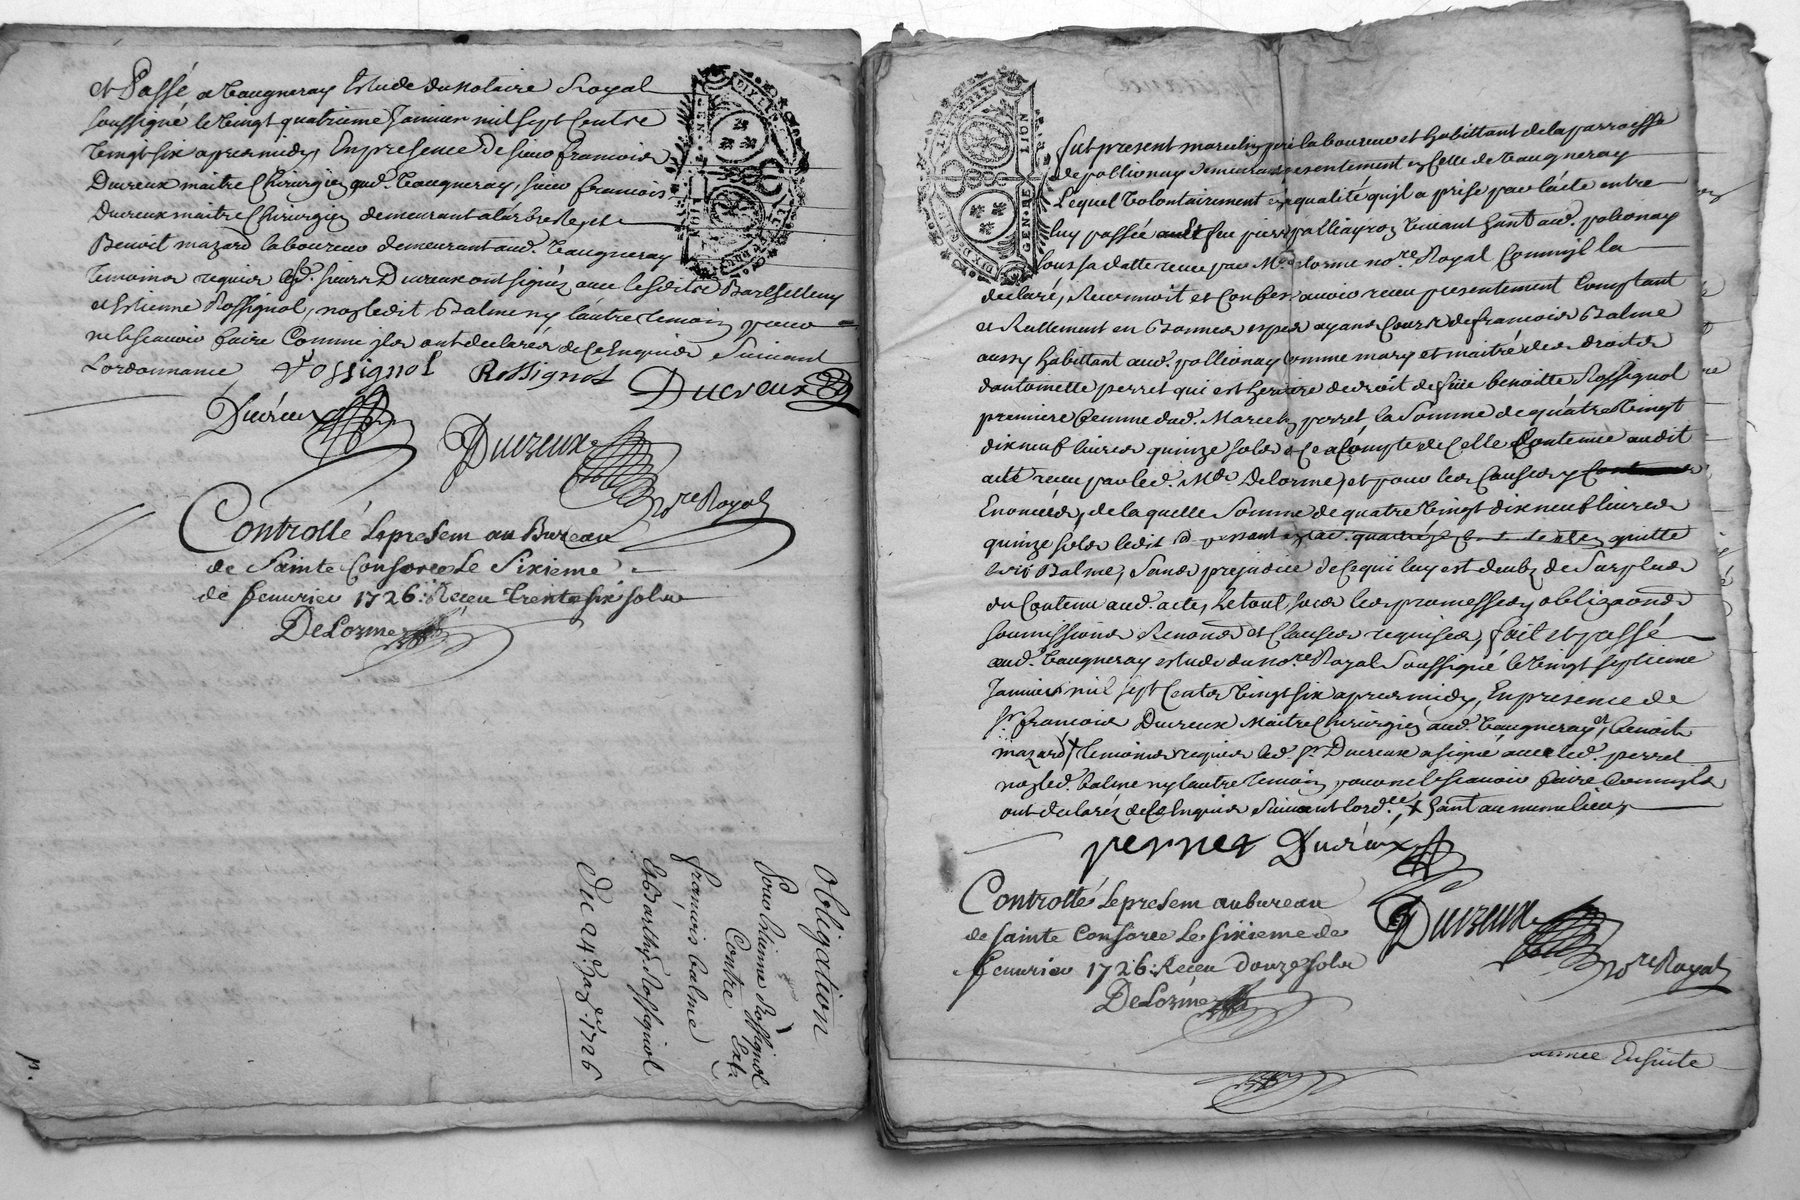 et Passé a Vaugneray Estude du notaire Royal
soussigné le vingt quatrieme Janvier mil sept Centre
vingt six apres midy, En presence de sieur francois
Ducreux maitre Chirurgien aud. Vaugneray, sieur francois
Ducreux maitre Chirurgien demeurant a larbresle et
Benoit mazard laboureur demeurant aud. Vaugneray
temoins requis lesd. sieurs Ducreux ont signéz avec lesdits Barthellemy
et Estienne Rossignol, non ledit Balme ny lautre temoin pour
ne scavoir faire Comme ils ont declarés de ce Enquis Suivant
Lordonnance Rossignol Rossignol Ducreux
Ducreux
Ducreux
no.re Royal
Controllé le presem au Bureau
de Sainte Consorce Le Sixieme
de feuvrier 1726: Receu trente six sols
DeLorme
Obligation
Pour Estienne Rossignol
Contre Ext.
françois balme
Et Barthy. Rossignol
Du 24.e Janv. 1726
p.
LION
GEN. DE
fut present marcelin perret laboureur et habittant de la parroisse
de pollionay demeurant presentement en Celle de Vaugneray
Lequel Volontairement en qualité quil a prise par lacte entre
luy passée et feu pierre Vivant hant aud. polionay
sous sa datte receu par M.e delorme no.re Royal Comm'il la
declaré, Reconnoit et Confesse avoir receu presentement Comptant
et Reellement en Bonnes especes ayans Cours de francois Balme
aussy habittant aud. pollionay Comme mary et maitre des droits
dantoinette perret qui est heritiere de droit de benoitte Rossignol
premiere femme dud. Marcelin perret la Somme de quatre Vingt
dix neuf livres quinze sols et Ce a Compte de Celle Contenue audit
acte receu par led. M.e Delorme, et pour les Causes y
Enoncées, de laquelle Somme de quatre Vingt dix neuf livres
quinze sols ledit quitte
ledit Balme, Sans prejudice de Ce qui luy est deub de Surplus
du Contenu aud. acte, Le tout, sous les promesses, obligaons
soumissions Renons et Clauses requises, fait et passé
aud. Vaugneray estude du no.re Royal Soussigné le Vingt septieme
Janvier mil sept Cents Vingt six apres midy, En presence de
S.r francois Ducreux Maitre Chirurgien aud. Vaugneray, et benoit
mazard + temoins requis led. S.r Ducreux a signé avec led. perret
non led. balme ny lautre temoin pour ne le scavoir faire Comm'ils
ont declaréz de Ce Enquis Suivant lord.ce, + hant au meme lieu,
perret Ducreux
Controllé Le presem au bureau
de sainte Consorce Le Sixieme de
feuvrier 1726: Receu douze sols
DeLorme
Ducreux
no.re Royal
Ensuite